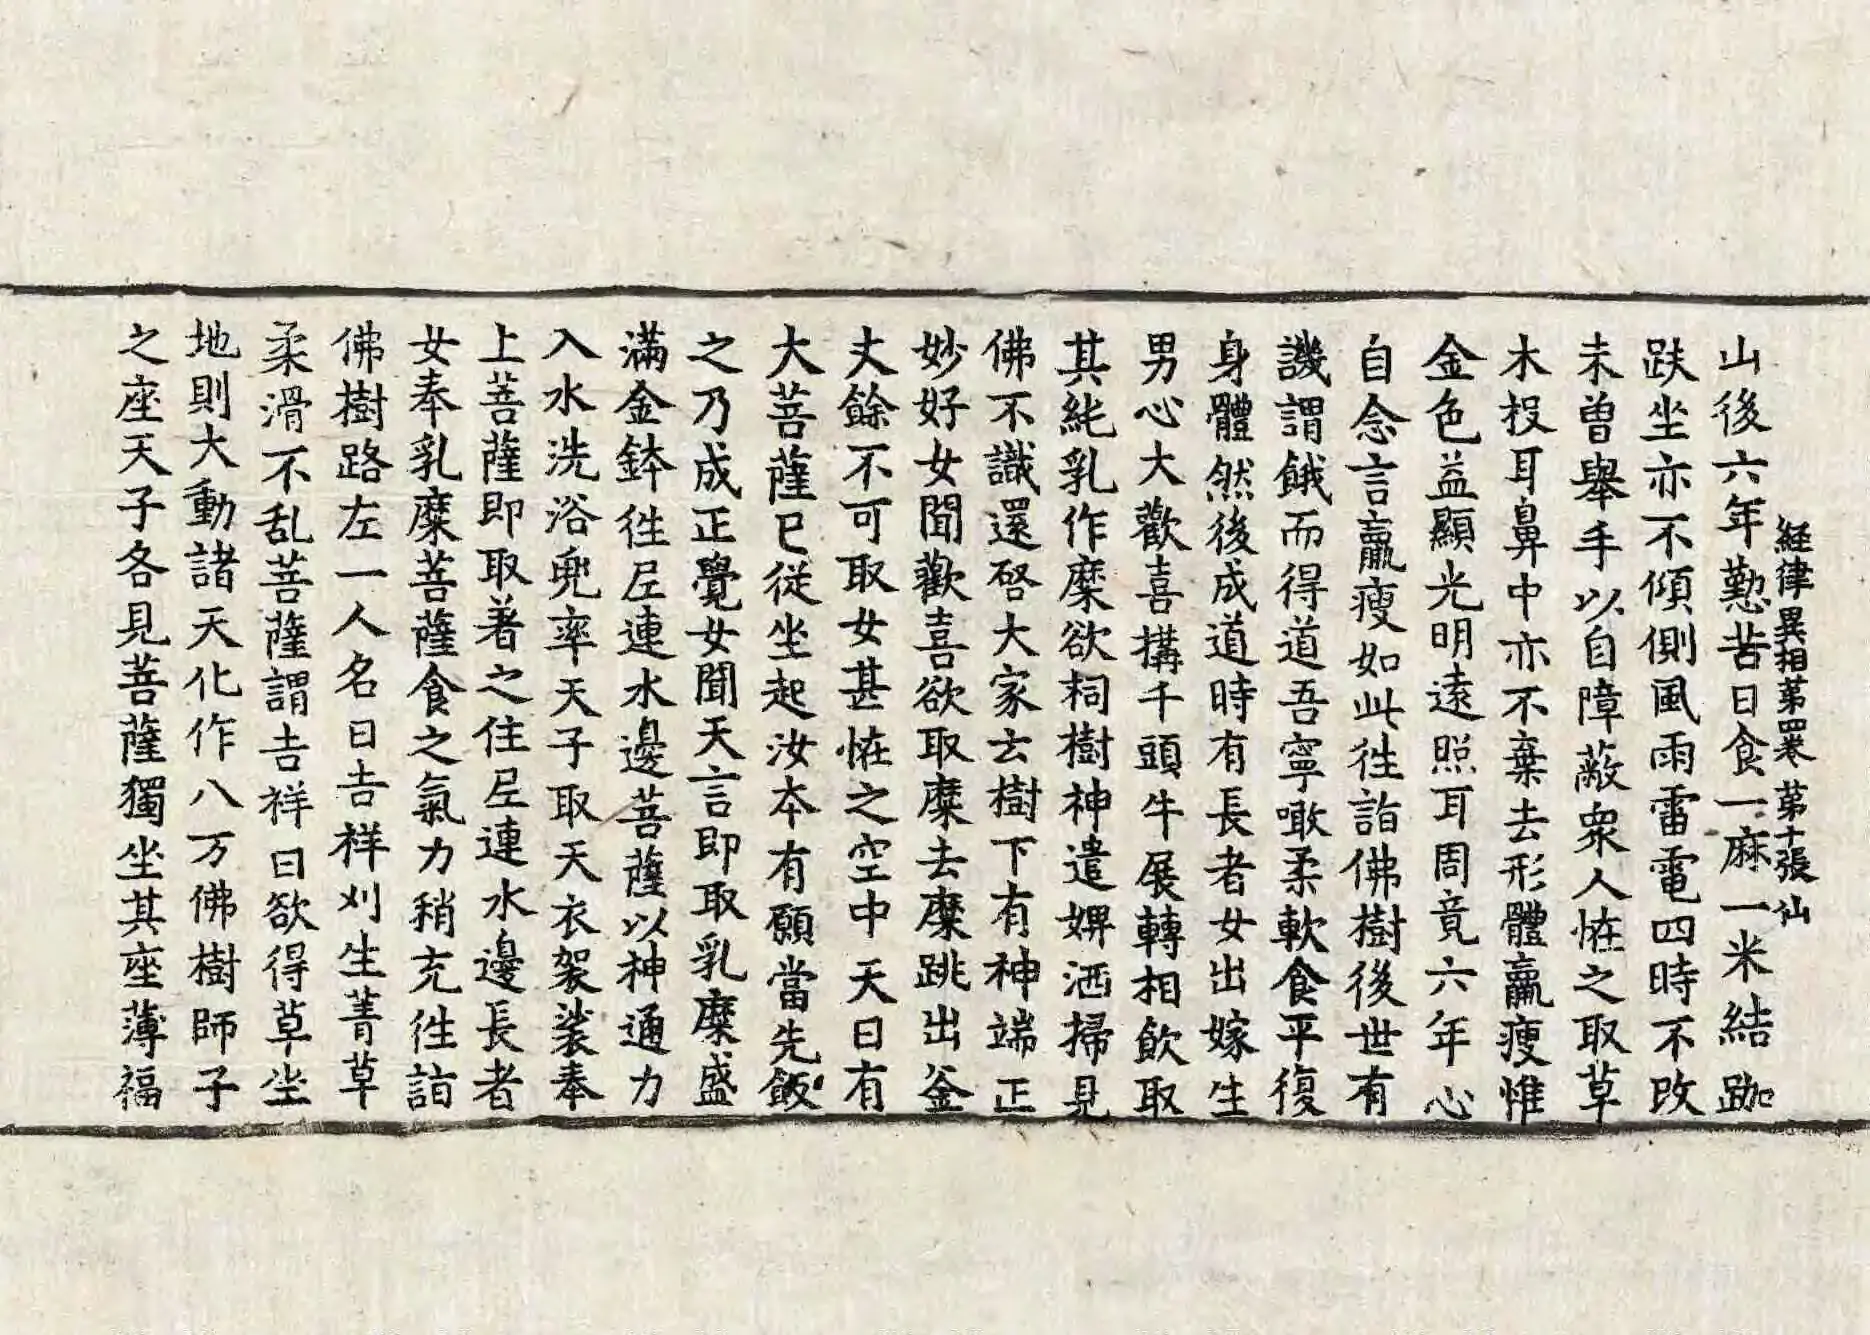 経律異相第四卷 第十張 仙
山後六年懃苦日食一麻一米結跏
趺坐亦不傾側風雨雷電四時不改
未曽舉手以自障蔽衆人恠之取草
木投耳鼻中亦不棄去形體羸瘦惟
金色益顯光明遠照耳周竟六年心
自念言羸瘦如此徃詣佛樹後世有
譏謂餓而得道吾寧噉柔軟食平復
身體然後成道時有長者女出嫁生
男心大歡喜搆千頭牛展轉相飲取
其純乳作糜欲祠樹神遣婢洒掃見
佛不識還啓大家云樹下有神端正
妙好女聞歡喜欲取糜去糜跳出釜
丈餘不可取女甚恠之空中天曰有
大菩薩已従坐起汝本有願當先飯
之乃成正覺女聞天言即取乳糜盛
滿金鉢徃尼連水邊菩薩以神通力
入水洗浴兜率天子取天衣袈裟奉
上菩薩即取著之住尼連水邊長者
女奉乳糜菩薩食之氣力稍充徃詣
佛樹路左一人名曰吉祥刈生菁草
柔滑不乱菩薩謂吉祥曰欲得草坐
地則大動諸天化作八万佛樹師子
之座天子各見菩薩獨坐其座薄福